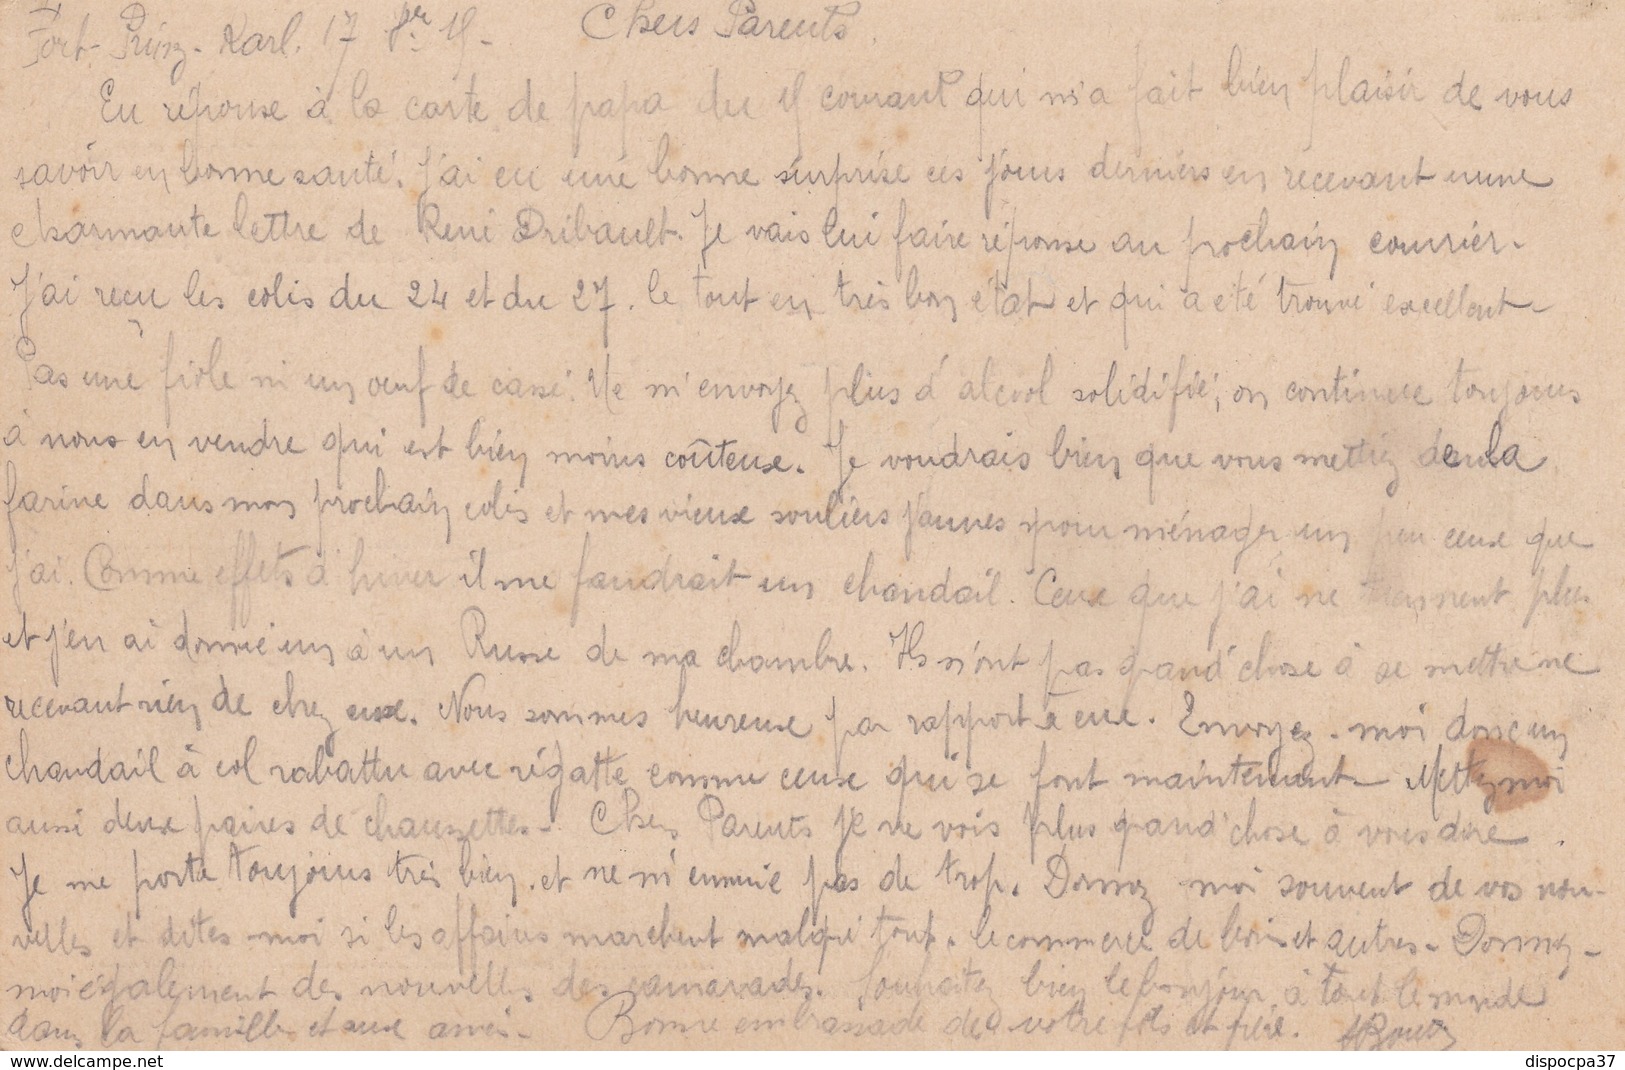 Fort-Prinz-Karl. 17 Chers Parents.
En réponse à la carte de papa du courant qui m'a fait bien plaisir de vous
savoir en bonne santé. J'ai eu une bonne surprise ces jours derniers en recevant une
charmante lettre de René Dribault. Je vais lui faire réponse au prochain courrier.
J'ai reçu les colis du 24 et du 27. le tout en très bon état et qui a été trouvé excellent.
Pas une fiole ni un œuf de cassé. Ne m'envoyez plus d'alcool solidifié, on continue toujours
à nous en vendre qui est bien moins coûteux. Je voudrais bien que vous mettiez de la
farine dans mon prochain colis et mes vieux souliers jaunes pour ménager un peu ceux que
j'ai. Comme effets d'hiver il me faudrait un chandail. Ceux que j'ai ne tiennent plus
et j'en ai donné un à un Russe de ma chambre. Ils n'ont pas grand'chose à se mettre ne
recevant rien de chez eux. Nous sommes heureux par rapport à eux. Envoyez-moi donc un
chandail à col rabattu avec régatte comme ceux qui se font maintenant. Mettez moi
aussi deux paires de chaussettes. Chers Parents je ne vois plus grand'chose à vous dire.
Je me porte toujours très bien, et ne m'ennuie pas de trop. Donnez moi souvent de vos nou-
velles et dites-moi si les affaires marchent malgré tout, le commerce de bois et autres. Donnez-
moi également des nouvelles des camarades. Souhaitez bien le bonjour à tout le monde
dans la famille et aux amis. Bonne embrassade de votre fils et frère.
www.delcampe.net dispocpa37